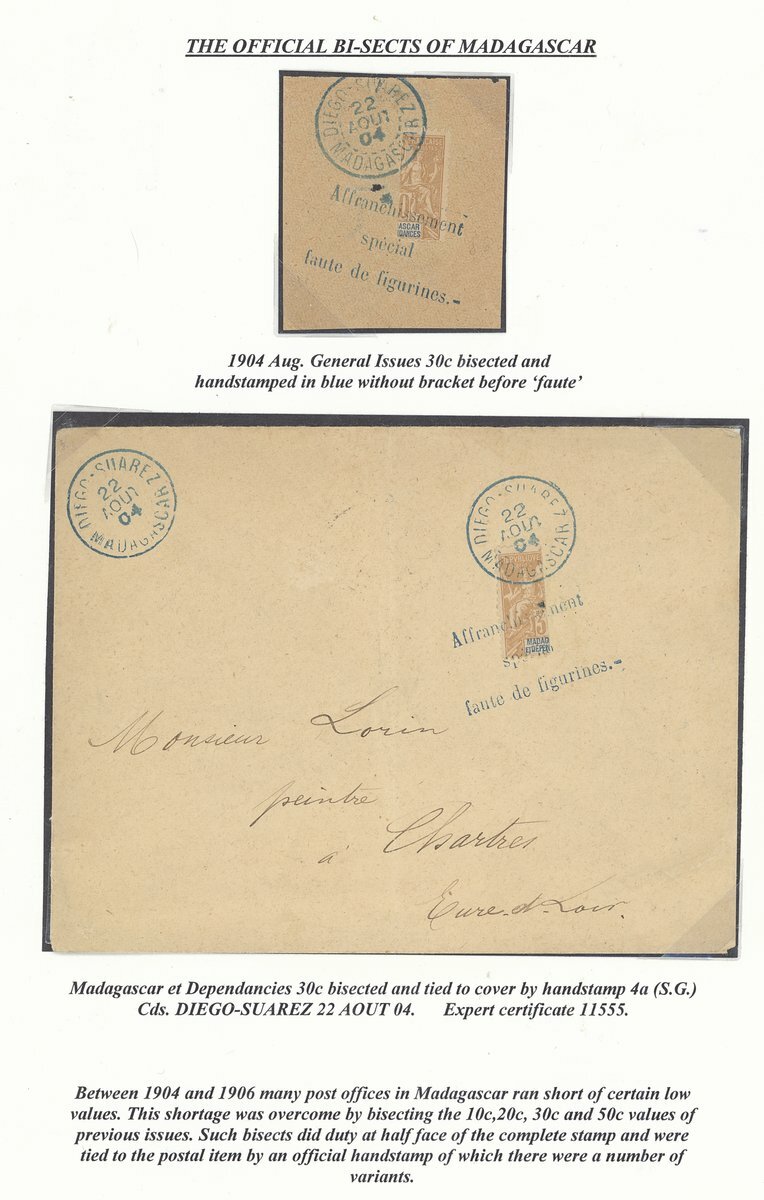 THE OFFICIAL BI-SECTS OF MADAGASCAR
DIEGO-SUAREZ
22
AOUT
04
MADAGASCAR
Affranchissement
spécial
faute de figurines.-
ASCAR
NDANCES
1904 Aug. General Issues 30c bisected and
handstamped in blue without bracket before ‘faute’
DIEGO-SUAREZ
22
AOUT
04
MADAGASCAR
DIEGO-SUAREZ
22
AOUT
04
MADAGASCAR
Affranchissement
spécial
faute de figurines.-
MADAG
ET DEPEN
Monsieur Lorin
peintre
à Chartres
Eure-et-Loir.
Madagascar et Dependancies 30c bisected and tied to cover by handstamp 4a (S.G.)
Cds. DIEGO-SUAREZ 22 AOUT 04. Expert certificate 11555.
Between 1904 and 1906 many post offices in Madagascar ran short of certain low
values. This shortage was overcome by bisecting the 10c,20c, 30c and 50c values of
previous issues. Such bisects did duty at half face of the complete stamp and were
tied to the postal item by an official handstamp of which there were a number of
variants.